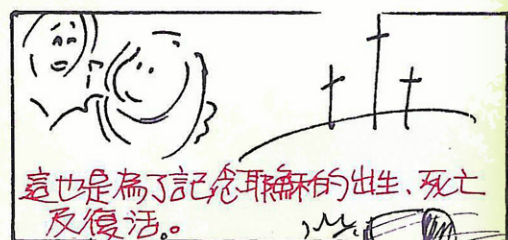 這也是為了記念耶穌的出生、死亡
及復活。